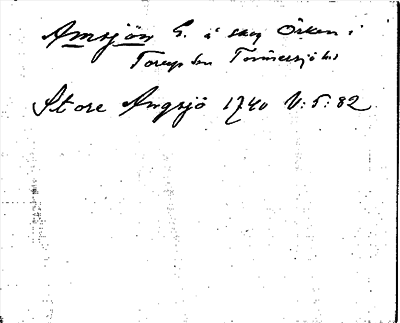 Amsjön S. å skog Örken i
Torups sn Tönnersjö hd
Store Amgsjö 1740 V:5:82